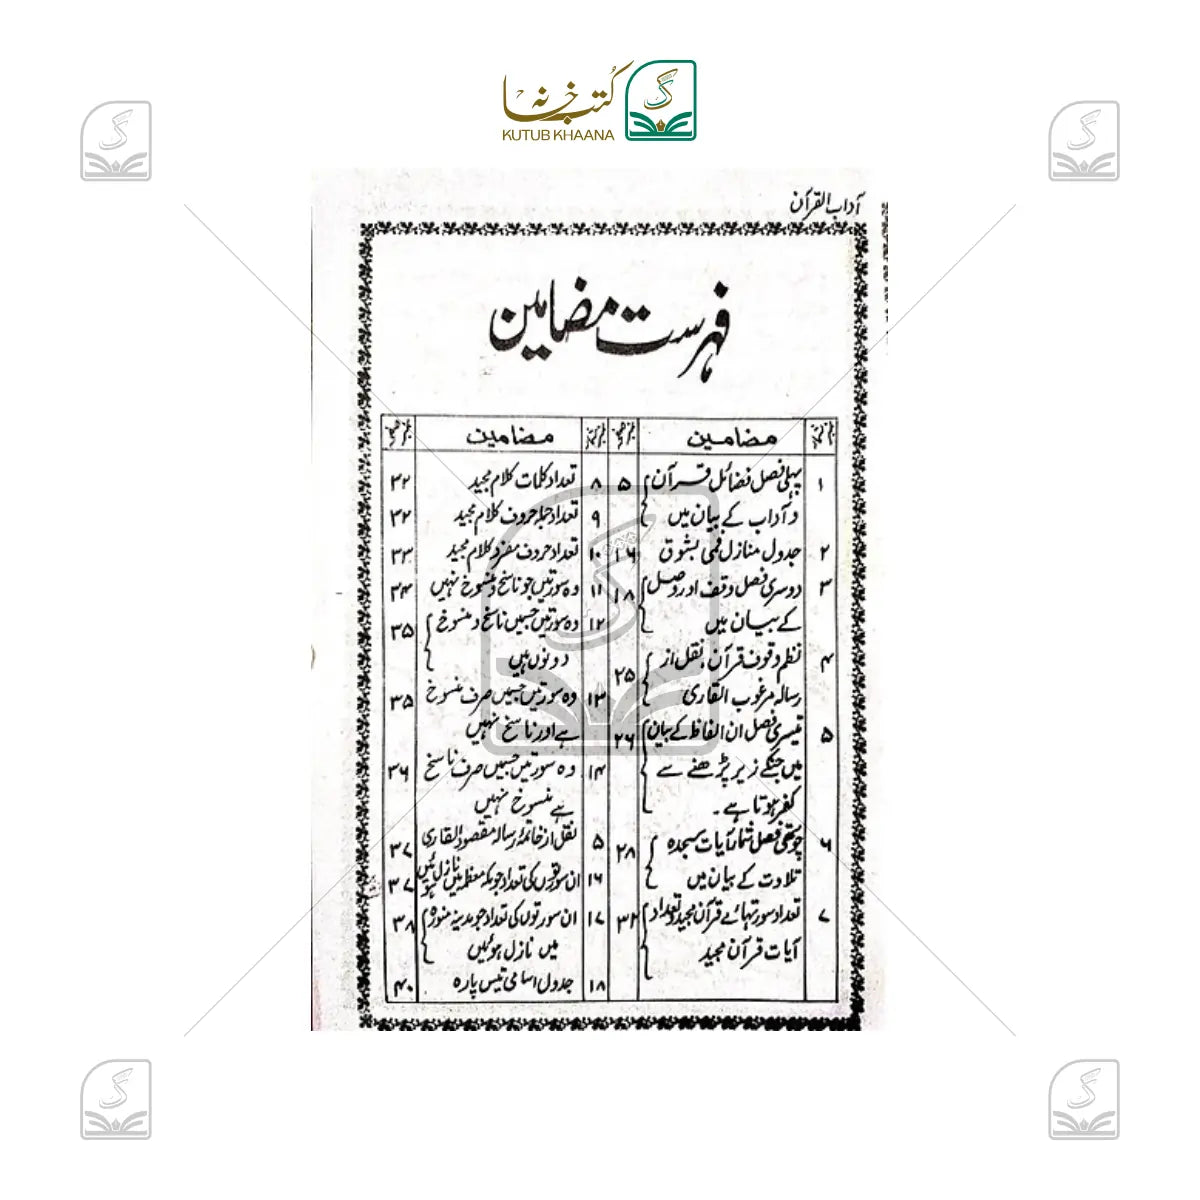 کتب خانہ
KUTUB KHAANA
آداب القرآن
فہرست مضامین
مضامین
۱ پہلی فصل فضائل قرآن ۵
و آداب کے بیان میں
۲ جدول منازل فمی بشوق ۱۶
۳ دوسری فصل وقف اور وصل ۱۸
کے بیان میں
۴ نظم وقوف قرآن، نقل از ۲۵
رسالہ مرغوب القاری
۵ تیسری فصل ان الفاظ کے بیان ۲۶
میں جنکے زیر پڑھنے سے
کفر ہوتا ہے۔
۶ چوتھی فصل شمار آیات سجدہ ۲۸
تلاوت کے بیان میں
۷ تعداد سورتہائے قرآن مجید و تعداد ۳۲
آیات قرآن مجید
مضامین
۸ تعداد کلمات کلام مجید ۳۲
۹ تعداد جملہ حروف کلام مجید ۳۲
۱۰ تعداد حروف مفرد کلام مجید ۳۳
۱۱ وہ سورتیں جو ناسخ و منسوخ نہیں ۳۴
۱۲ وہ سورتیں جسمیں ناسخ و منسوخ ۳۵
دونوں ہیں
۱۳ وہ سورتیں جسمیں صرف منسوخ ۳۵
ہے اور ناسخ نہیں
۱۴ وہ سورتیں جسمیں صرف ناسخ ۳۶
ہے منسوخ نہیں
۵ نقل از خاتمہ رسالہ مقصود القاری ۳۷
۱۶ ان سورتوں کی تعداد جو مکہ معظمہ میں نازل ہوئیں ۳۷
۱۷ ان سورتوں کی تعداد جو مدینہ منورہ ۳۸
میں نازل ہوئیں
۱۸ جدول اسامی تیس پارہ ۴۰